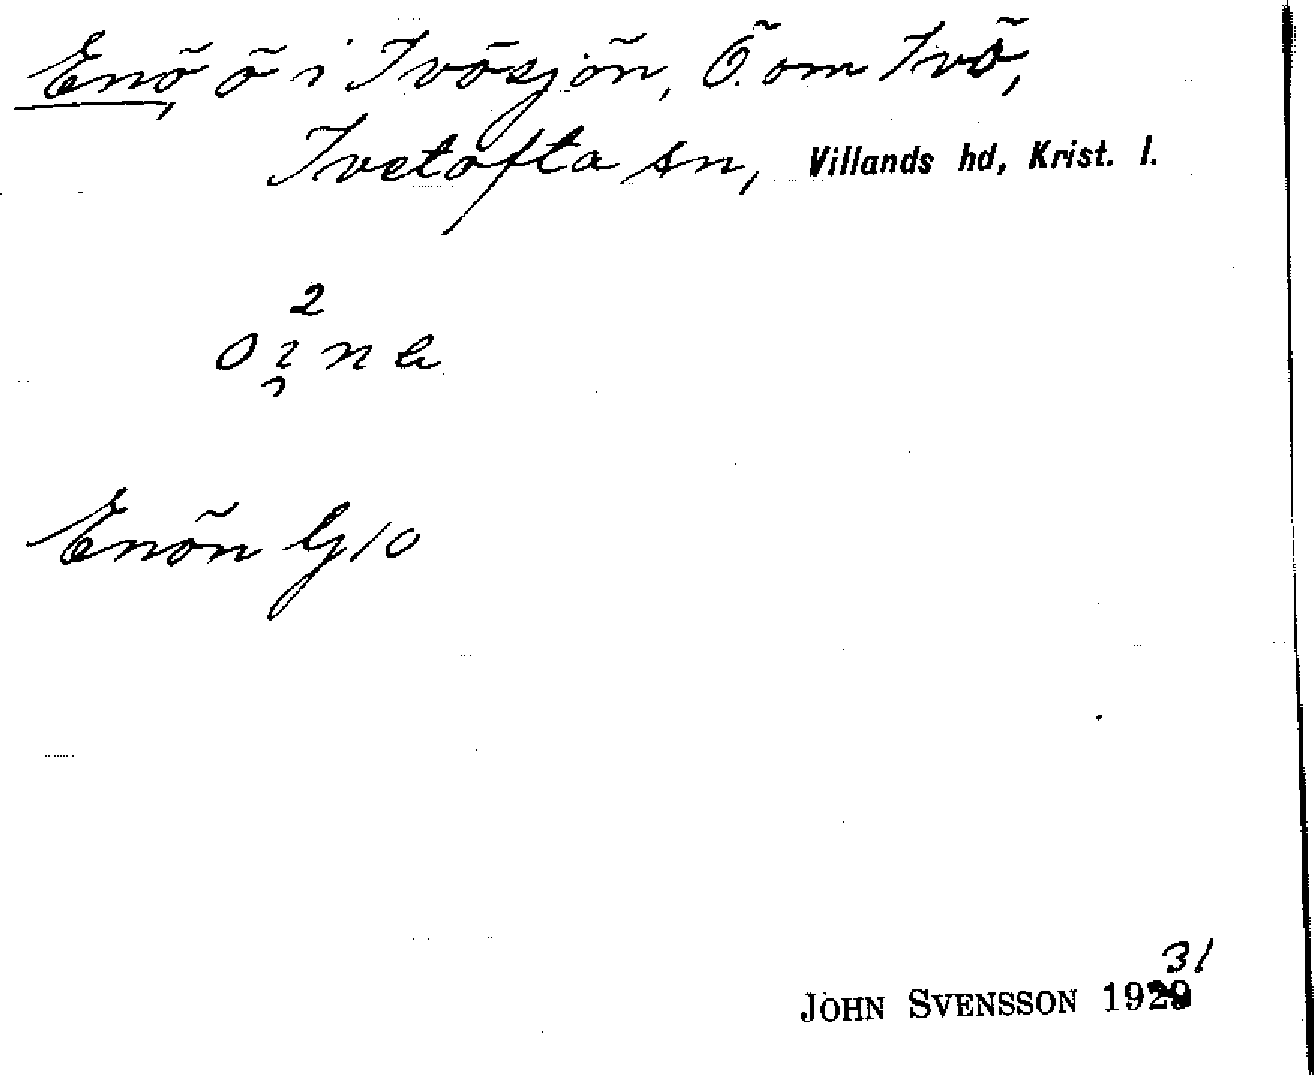 Enö, ö i Ivösjön, Ö. om Ivö,
Ivetofta sn, Villands hd, Krist. l.
2
Enön G10
31
JOHN SVENSSON 1929